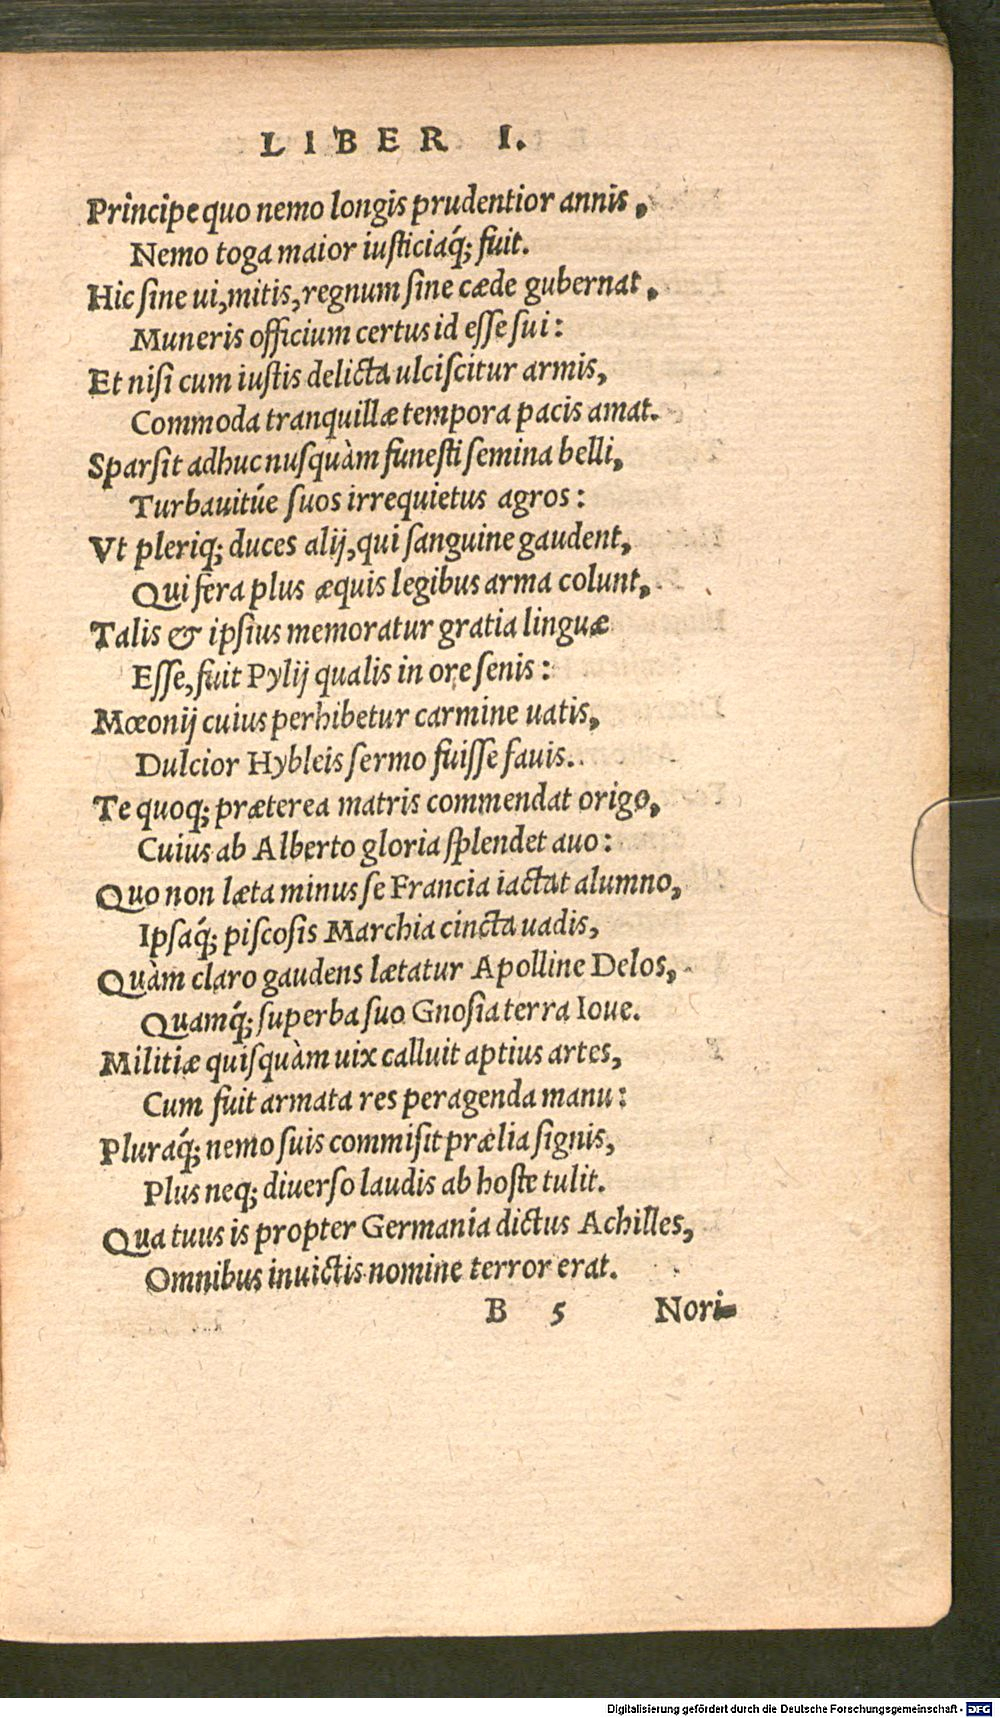 LIBER I.
Principe quo nemo longis prudentior annis,
Nemo toga maior iusticiaq́; fuit.
Hic sine ui, mitis, regnum sine cæde gubernat,
Muneris officium certus id esse sui:
Et nisi cum iustis delicta ulciscitur armis,
Commoda tranquillæ tempora pacis amat.
Sparsit adhuc nusquàm funesti semina belli,
Turbauitúe suos irrequietus agros:
Vt pleriq; duces alij, qui sanguine gaudent,
Qui fera plus æquis legibus arma colunt,
Talis & ipsius memoratur gratia linguæ
Esse, fuit Pylij qualis in ore senis:
Mœonij cuius perhibetur carmine uatis,
Dulcior Hybleis sermo fuisse fauis.
Te quoq; præterea matris commendat origo,
Cuius ab Alberto gloria splendet auo:
Quo non læta minus se Francia iactat alumno,
Ipsaq́; piscosis Marchia cincta uadis,
Quàm claro gaudens lætatur Apolline Delos,
Quamq́; superba suo Gnosia terra Ioue.
Militiæ quisquàm uix calluit aptius artes,
Cum fuit armata res peragenda manu:
Pluraq́; nemo suis commisit prælia signis,
Plus neq; diuerso laudis ab hoste tulit.
Qua tuus is propter Germania dictus Achilles,
Omnibus inuictis nomine terror erat.
B 5 Nori-
Digitalisierung gefördert durch die Deutsche Forschungsgemeinschaft - DFG